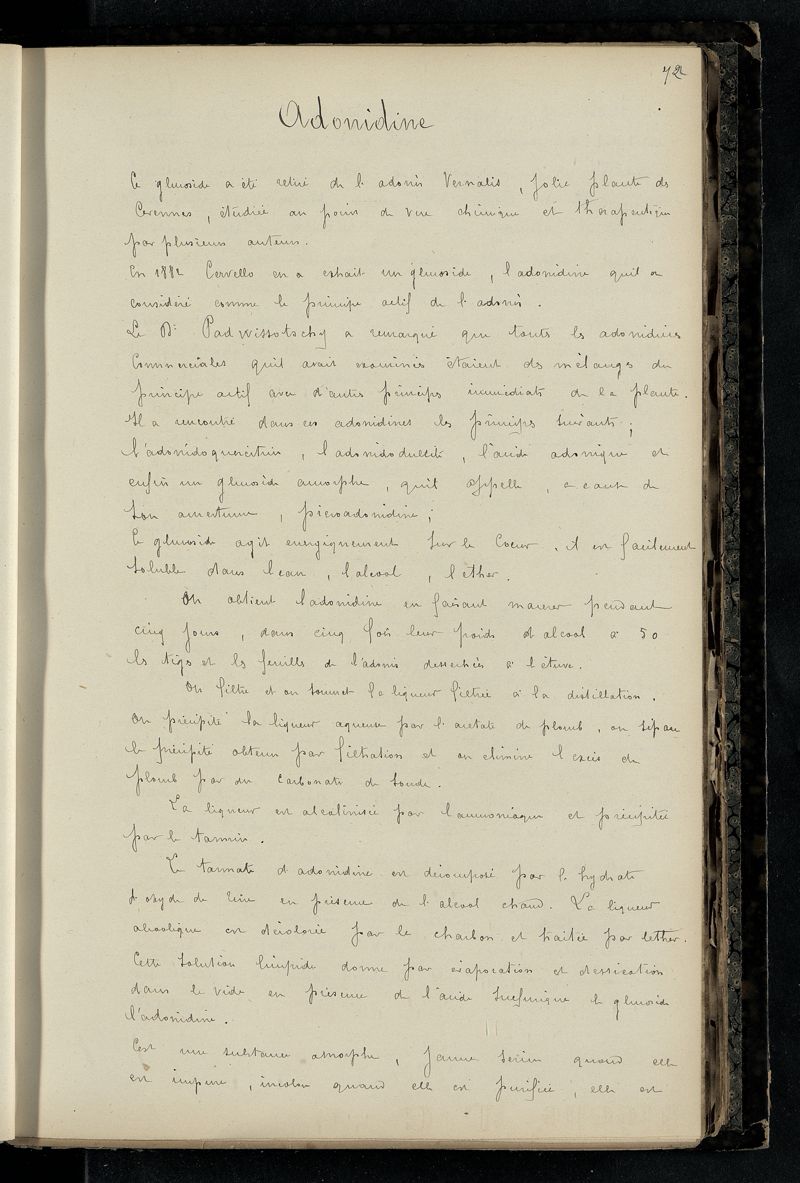 72
Adonidine
Ce glucoside a été retiré de l'adonis Vernalis, jolie plante des
Cevennes, étudiée au point de vue chimique et thérapeutique
par plusieurs auteurs.
En 1882 Cervello en a extrait un glucoside, l'adonidine qu'il a
considéré comme le principe actif de l'adonis.
Le Dr Padwissotschy a remarqué que touts les adonidines
Commerciales qu'il avait examinés étaient des mélanges du
principe actif avec d'autres principes immédiats de la plante.
Il a rencontré dans ces adonidines les principes suivants;
l'adonidoquercitrin, l'adonidodulcité, l'acide adonique et
enfin un glucoside amorphe, qu'il appelle, a cause de
son amertume, picroadonidine;
Ce glucoside agit energiquement sur le Coeur. il est facilement
soluble dans l'eau, l'alcool, l'ether.
On obtient l'adonidine en faisant macerer pendant
cinq jours, dans cinq fois leur poids d'alcool à 50
les tiges et les feuilles de l'adonis dessechées à l'étuve.
On filtre et on soumet la liqueur filtrée à la distillation.
On précipite la liqueur aqueuse par l'acetate de plomb, on sépare
le précipité obtenu par filtration et on elimine l'excés de
plomb par du carbonate de soude.
La liqueur est alcalinisée par l'ammoniaque et précipitée
par le tannin.
Le tannate d'adonidine est décomposé par l'hydrate
d'oxyde de Zinc en présence de l'alcool chaud. La liqueur
alcoolique est décolorée par le charbon et traitée par l'ether.
Cette solution limpide donne par évaporation et dessication
dans le vide en présence de l'acide sulfurique le glucoside
l'adonidine.
C'est une substance amorphe, jaune serin quand elle
est impure, incolore quand elle est purifiée, elle est